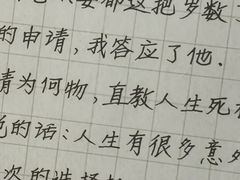 都这把岁数
的申请，我答应了他.
情为何物，直教人生死
的话：人生有很多意外
次的选择